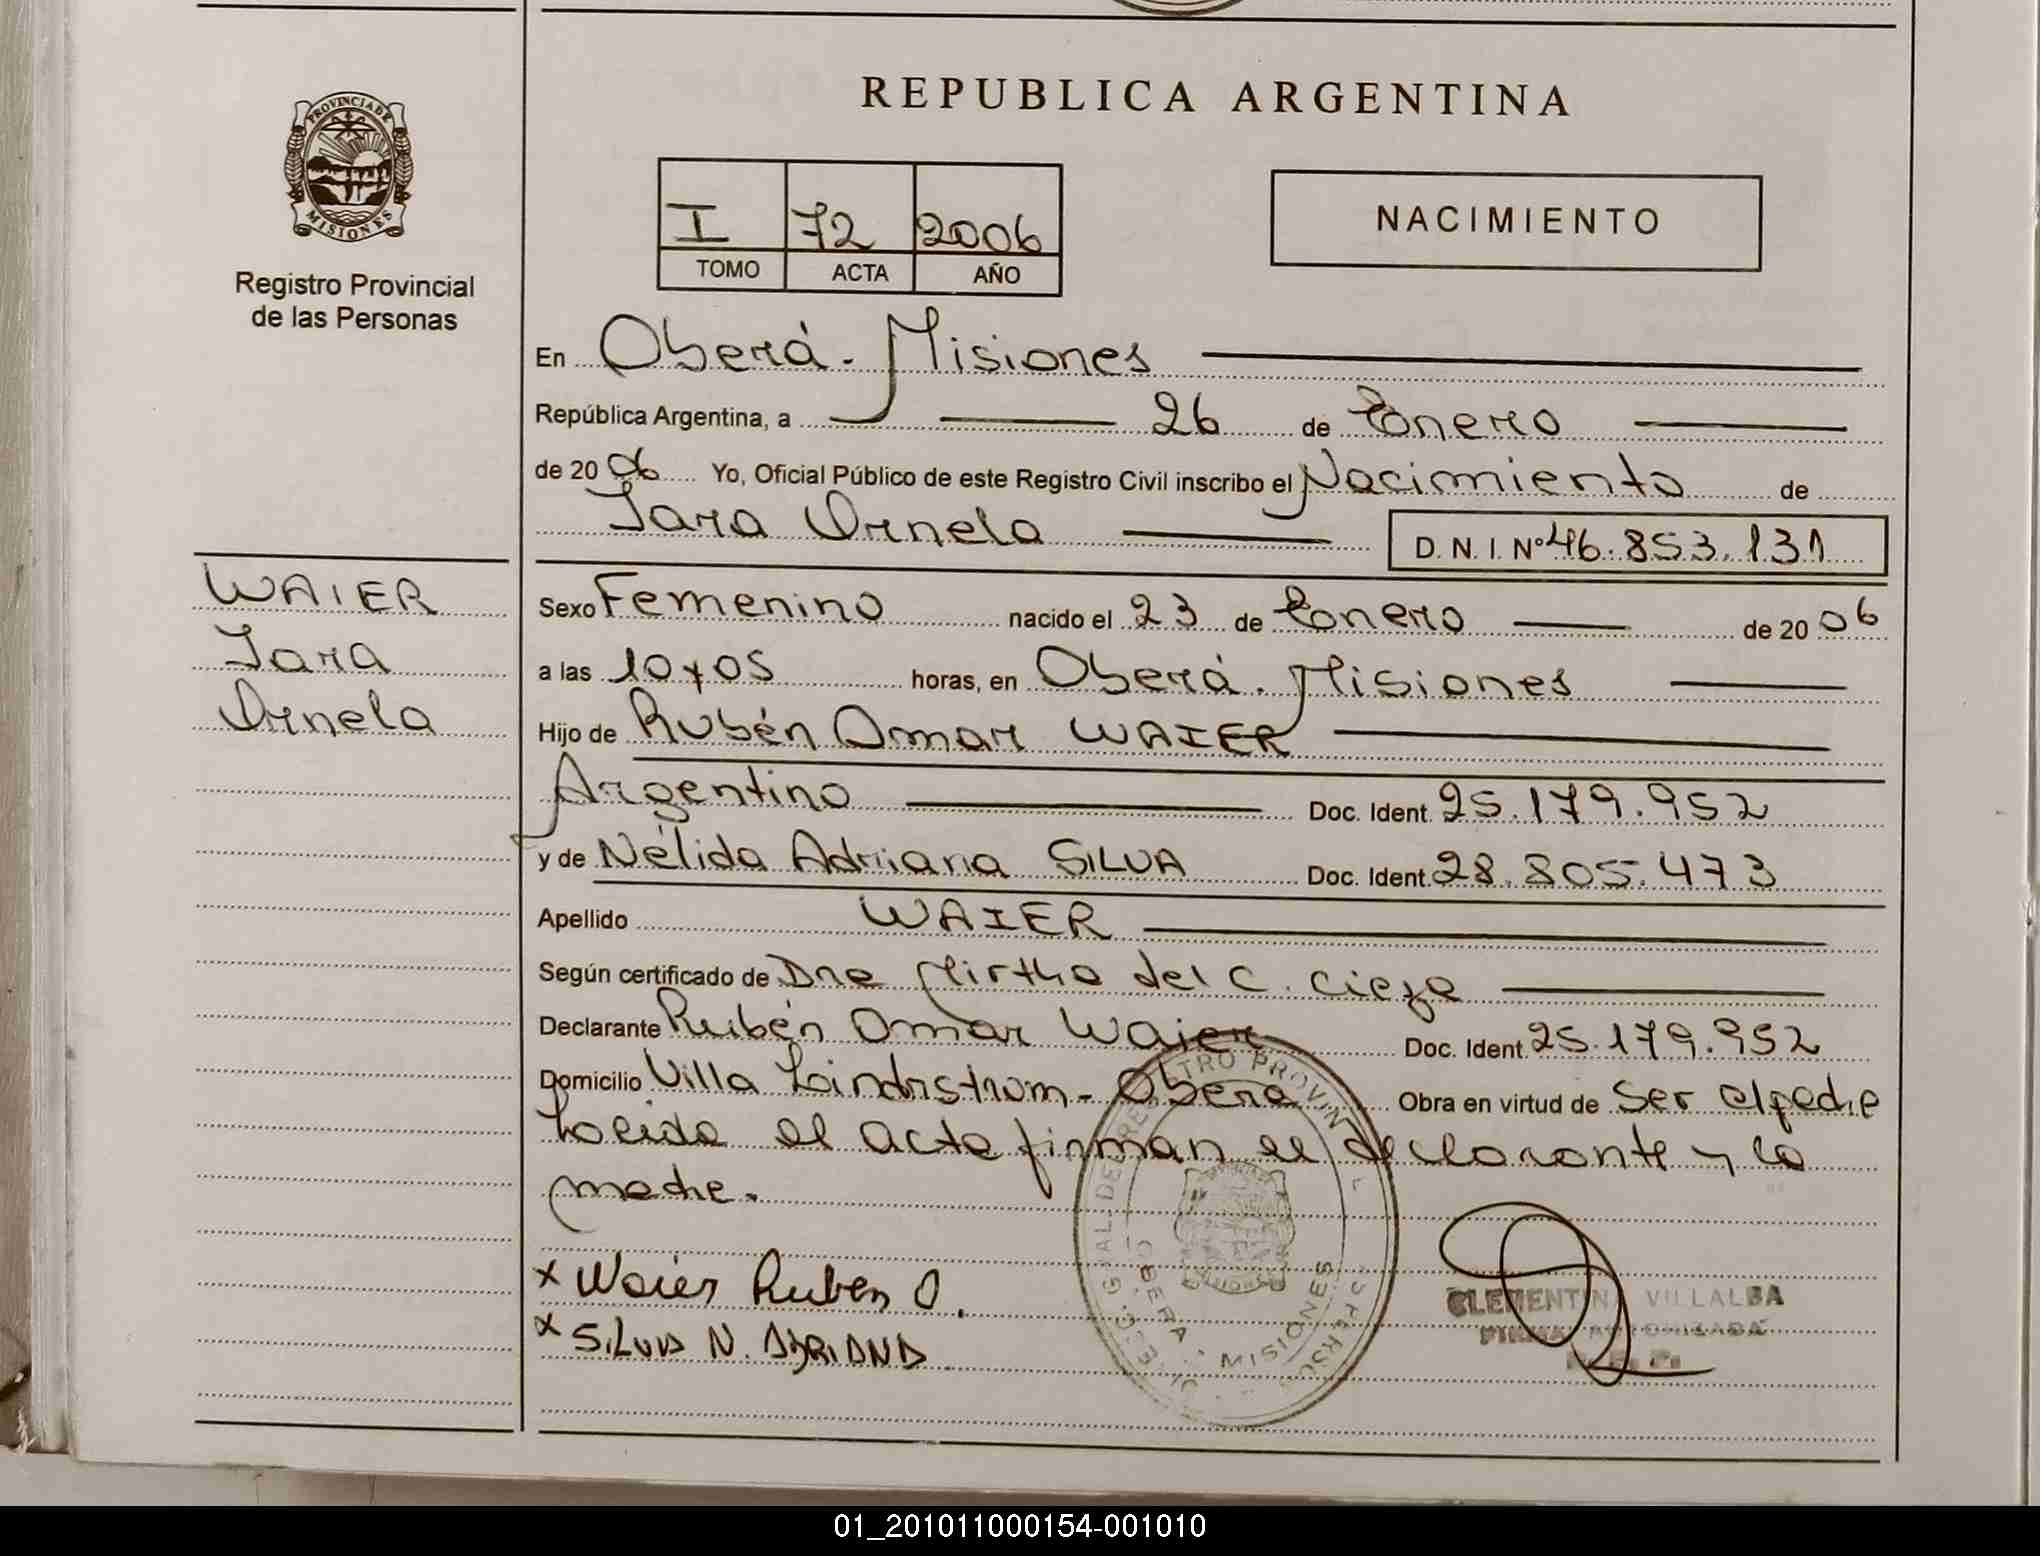 REPUBLICA ARGENTINA
PROVINCIA DE
MISIONES
Registro Provincial
de las Personas
I 72 2006
TOMO ACTA AÑO
NACIMIENTO
En Oberá - Misiones
República Argentina, a 26 de Enero
de 20 06 Yo, Oficial Público de este Registro Civil inscribo el Nacimiento de
Iara Ornela D. N. I. Nº 46.853.131
WAIER
Iara
Ornela
Sexo Femenino nacido el 23 de Enero de 20 06
a las 10 y 05 horas, en Oberá. Misiones
Hijo de Rubén Omar WAIER
Argentino Doc. Ident. 25.179.952
y de Nélida Adriana SILVA Doc. Ident. 28.805.473
Apellido WAIER
Según certificado de Dra Mirtha del C. Cieza
Declarante Rubén Omar Waier Doc. Ident. 25.179.952
Domicilio Villa Lindstrom - Oberá Obra en virtud de Ser el padre
Leida el acta firman el declarante y la
madre.
x Waier Ruben O.
x SILVA N. ADRIANA
OBERA - MISIONES
CLEMENTINA VILLALBA
FIRMA AUTORIZADA
01_201011000154-001010